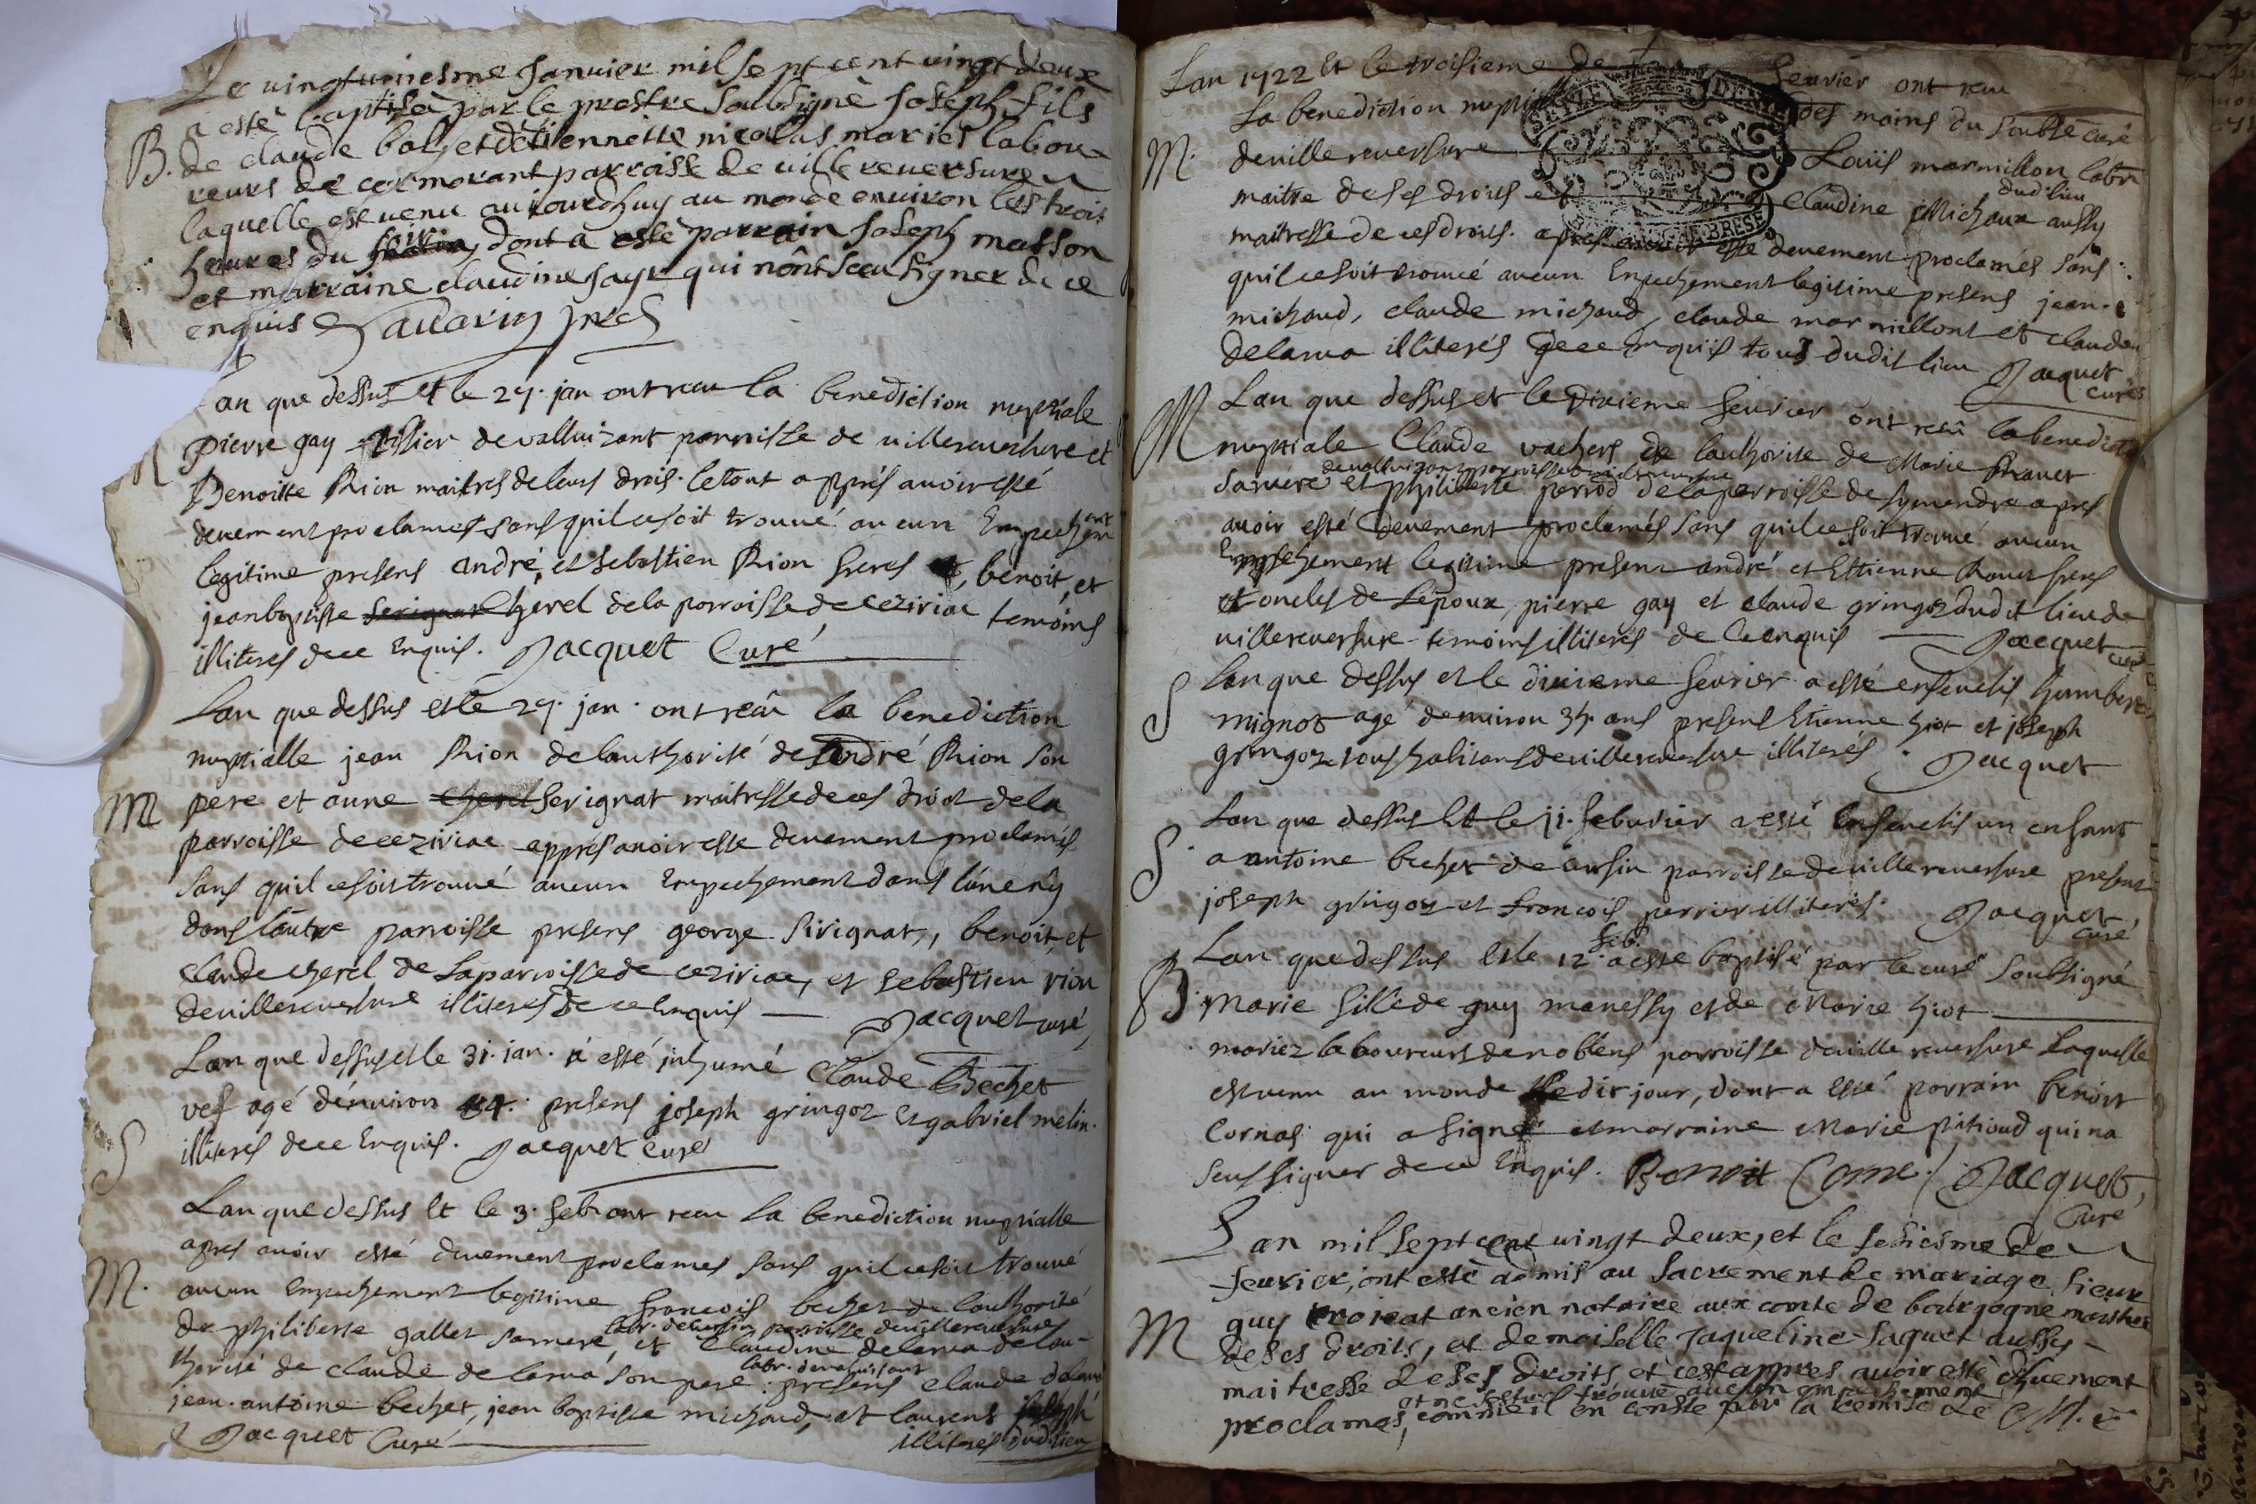 Le vingtuniesme Janvier mil sept cent vingt deux
a esté baptisé par le prestre soubsigné Joseph fils
B. de claude bolz et detiennette nicolas mariés labou-
reurs de cormorant parroisse de villereversure
laquelle est venu aujourdhuy au monde environ les trois
heures du dont a esté parrain Joseph masson
et marraine claudine Jayr qui nônt sceu signer de ce
enquis
an que dessus et le 27. jan ont receu la benediction nuptiale
M pierre gay tissier de valluizant parroisse de villereversure et
Benoitte Rion maitres de leurs drois. le tout apprés avoir esté
devement proclames sans quil ce soit trouvé aucun Empechem ent
legitime presens andré, et sebastien Rion freres, benoit, et
jean baptiste serignat cherel de la parroisse de ceziriac temoins
illiteres de ce Enquis. Jacquet Curé
Lan que dessus et le 27. jan. ont reçû la benediction
nuptialle jean Rion de lauthorité de andré Rion son
M pere et anne cherel serignat maitresse de ces droit de la
parroisse de ceziriac apprés avoir esté devement proclamés
sans quil ce soit trouvé aucun Empechement dans lúne ny
dans lautre parroisse presens george sirignat, benoit, et
claude cherel de la parroisse de ceziriac, et sebastien rion
de villereversure illiteres de ce Enquis Jacquet curé
Lan que dessus et le 31. jan. a esté inhumé claude Bechet
S vef agé d'environ presens joseph gringoz et gabriel melin.
illiteres de ce Enquis. Jacquet curé
Lan que dessus Et le 3. feb. ont receu la benediction nuptialle
apres avoir esté devement proclames sans quil ce soit trouvé
M. aucun Empechement legitime francois bechet de lauthorité
labr. de parroisse de villereversure
de philiberte gallet sa mere, et Claudine delarua de lau-
thorité de claude de larua son pere. presens claude delarua
labr. de valuisant
jean antoine bechet, jean baptiste michaud, et laurens joseph
Jacquet Curé illiterés dudit lieu
Lan 1722 Et le troisieme de fevrier ont receu
la benediction nuptial des mains du soubsé curé
M. de villereversure Louis marmillon labr
dudit lieu
maitre de ses droits et claudine Michaux aussy
maitresse de ces drois. apres avoir esté devement proclames sans
quil ce soit trouvé aucun Enpechement legitime presens jean
michaud, claude michaud, claude marmillont et claude
delarua illiterés Enquis tous dudit lieu Jacquet
curé
Lan que dessus et le dixieme fevrier ont reçû la benedict
M nuptiale Claude vachers de lauthorité de Marie Ravet
de valluizant parroisse de villereversure
sa mere et philiberte perrod de la parroisse de symandre apres
avoir esté devement proclamés sans quil ce soit trouvé aucun
Empechement legitime presens andré et Ettienne Ravet freres
et oncles de Lépoux, pierre gay et claude gringoz dudit lieu de
villereversure temoins illiterés de ce enquis Jacquet curé
Lan que dessus et le dixieme fevrier a esté ensevelis humbert
S mignot agé denviron 35. ans presens Etienne hiot et joseph
gringoz tous habitans de villereversure illiterés. Jacquet
Lan que dessus Et le 11. feburier a esté Ensevelis un enfant
S a antoine bechet de parroisse de villereversure present
joseph gringoz et francois perrier illiteres. Jacquet,
curé
feb.
Lan que dessus et le 12. a esté baptisé par le curé soubsigné
B. Marie fille de guy manessy et de Marie hiot
mariez laboureurs de noblens parroisse de villereversure Laquelle
est venu au monde ledit jour, dont a esté parrain benoit
Cornas qui a signé et marraine Marie pitioud qui na
seus signer de ce Enquis. Benoit Jacquet,
Curé
Lan mil sept cent vingt deux, et le sesiesme de
fevrier, ont esté admis au sacrement de mariage Sieur
M guy ancien notaire aux comté de bourgogne maistre
de ses droits, et demoiselle Jaqueline Jaquet aussy
maitresse de ses droits et cest appres avoir esté dhuement
et ne sestre trouvé aucun empechement
proclames, comme il en conste par la remise de M. le